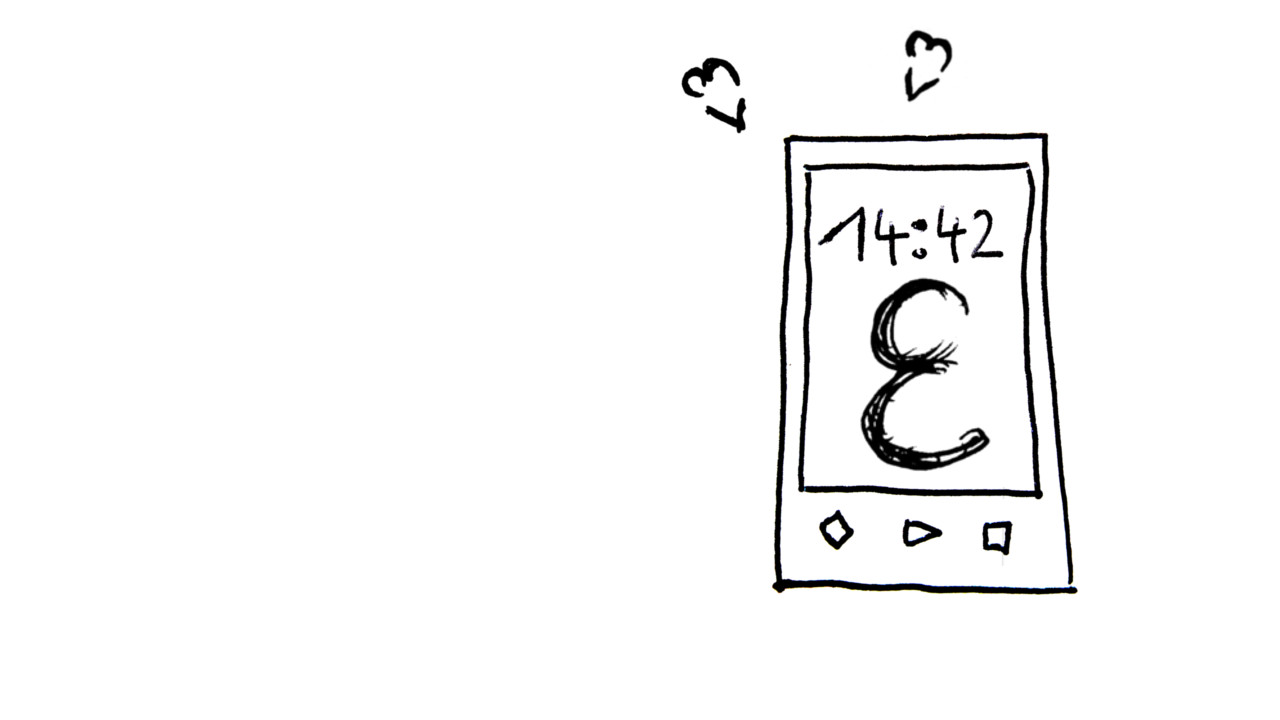 <3 <3
14:42
ε